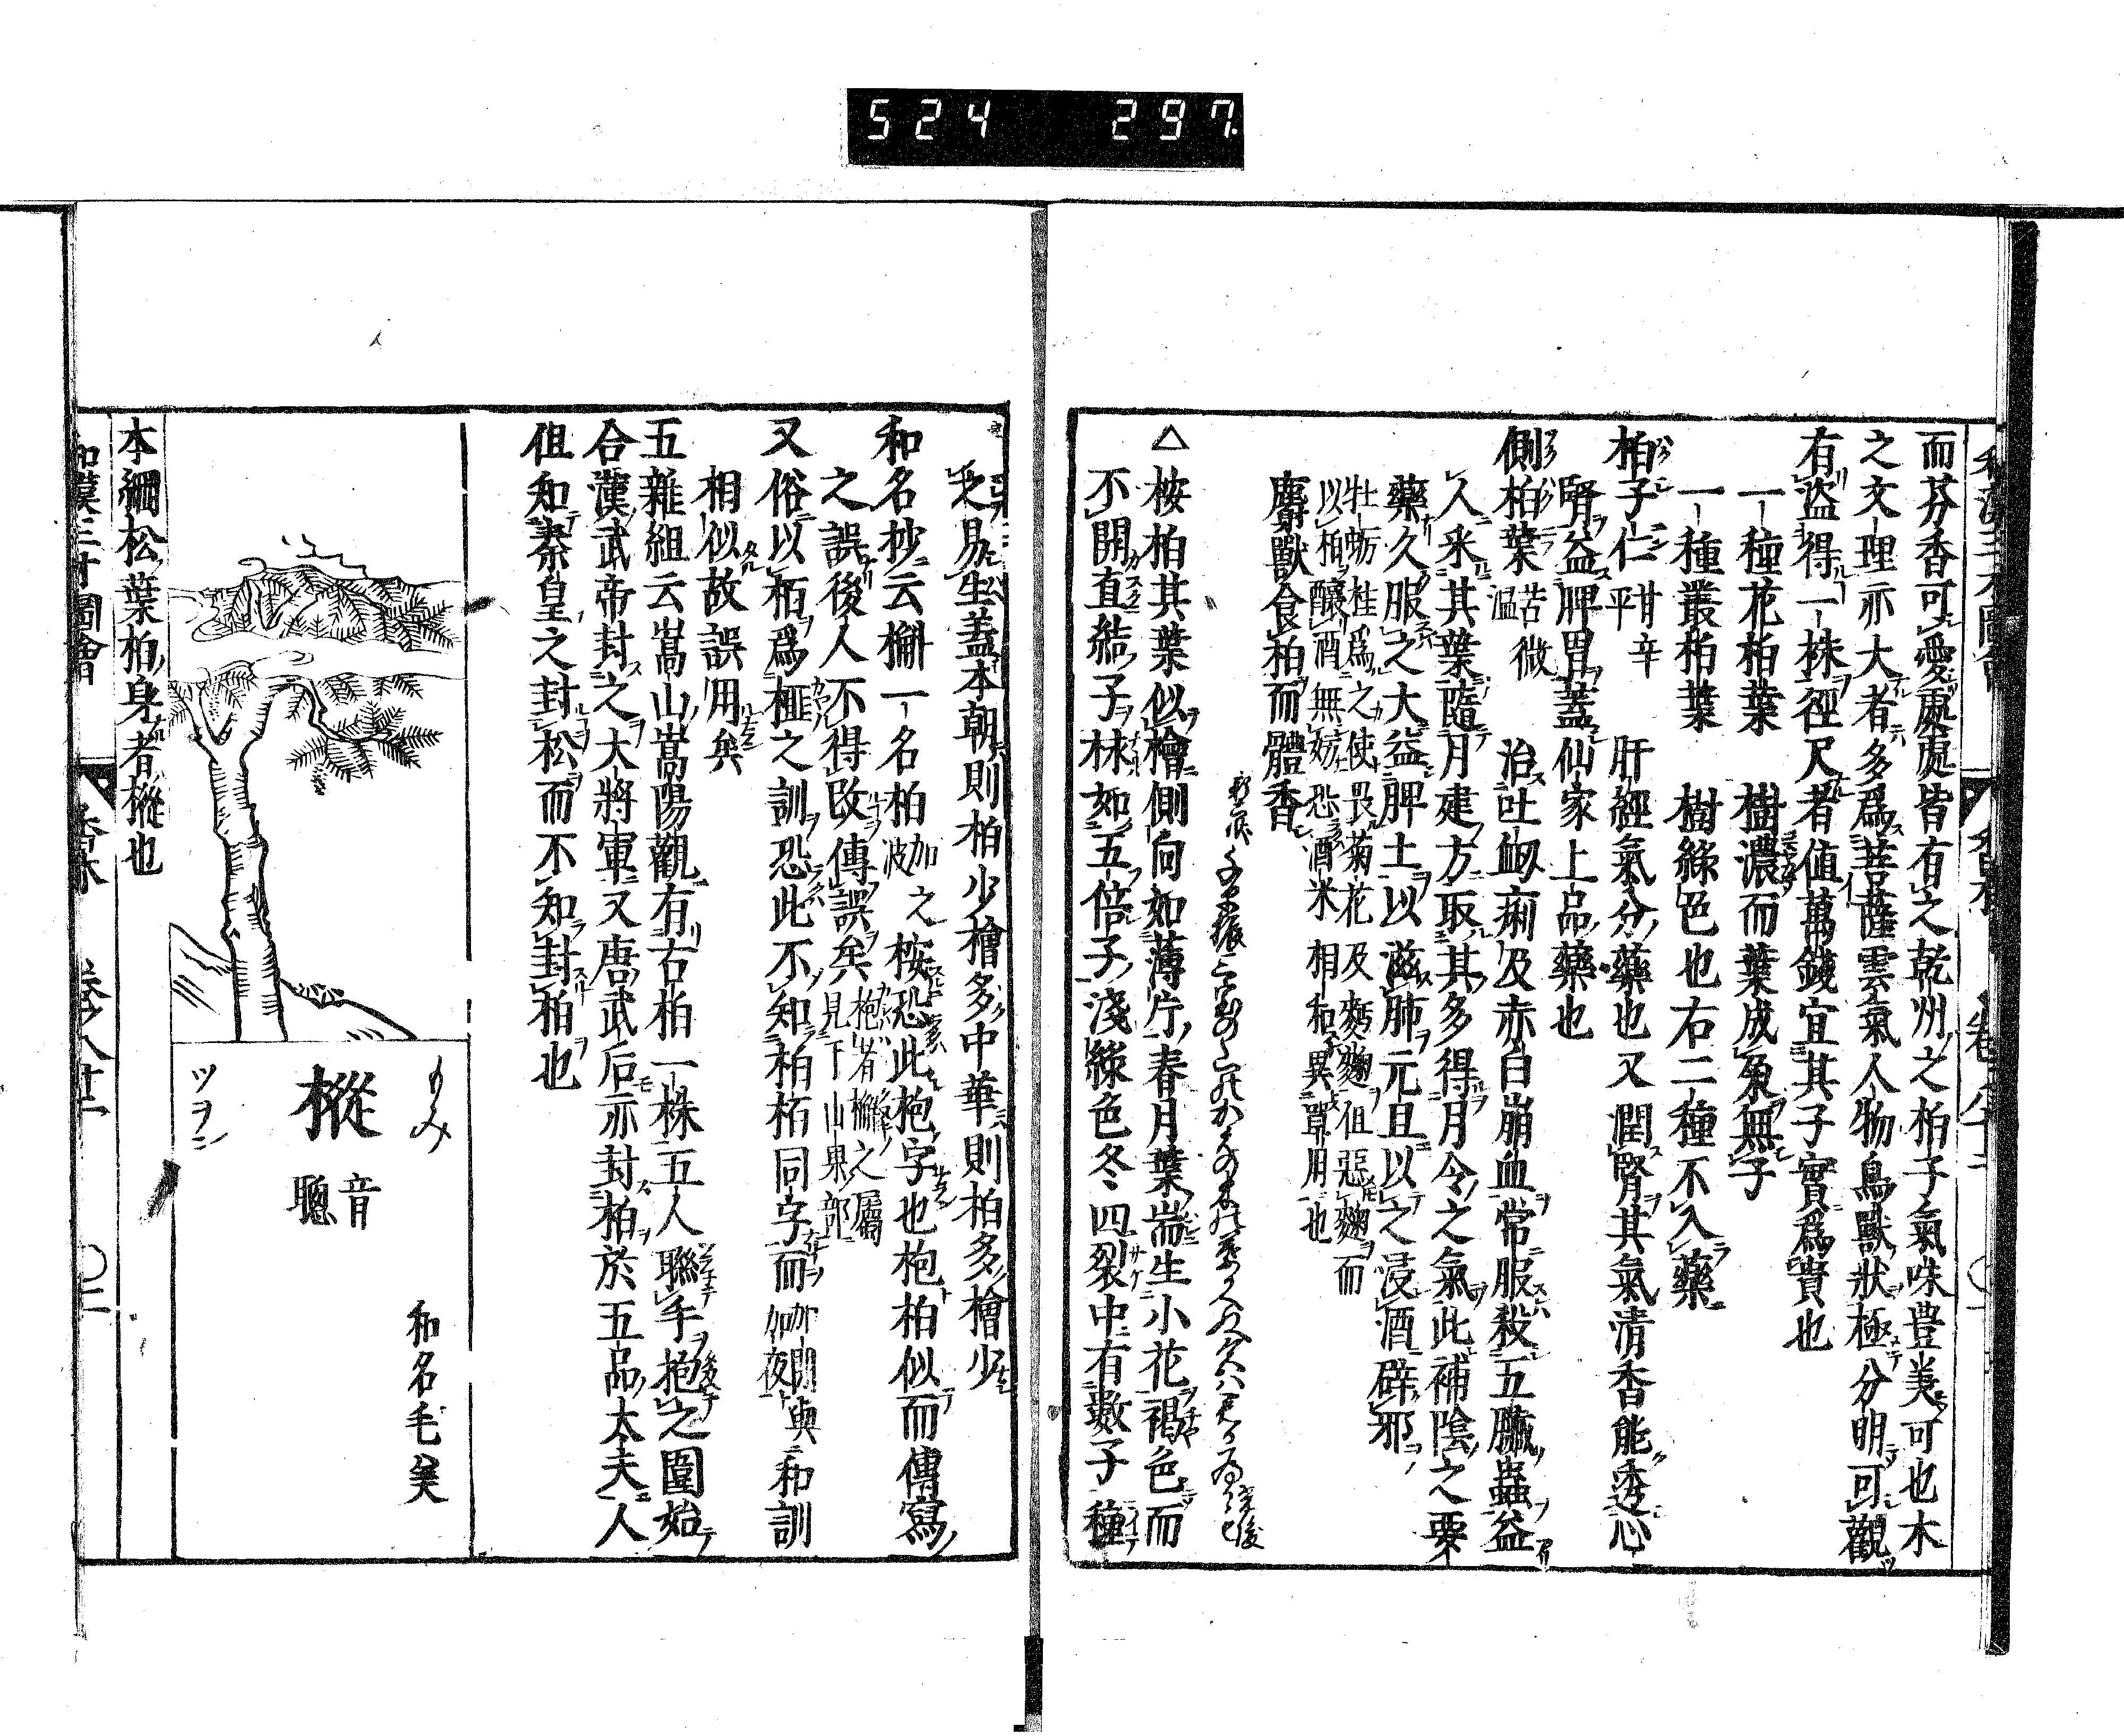 524 297.
而芬香可愛處處皆有之乾州之柏子氣味豊美可也木
之文理亦大者多爲菩薩雲氣人物鳥獸狀極分明可觀
有盗得一株徑尺者值萬錢宜其子實爲貴也
一種花柏葉 樹濃而葉成朶無子
一種叢柏葉 樹綠色也右二種不入藥
柏子仁 甘辛平 肝經氣分藥也又潤腎其氣清香能透心
腎益脾胃蓋仙家上品藥也
側柏葉 苦微温 治吐衂痢及赤白崩血常服殺五臟蟲益
人采其葉隨月建方取其多得月令之氣此補陰之要
藥久服之大益脾土以滋肺元旦以之浸酒辟邪
牡蛎桂爲之使畏菊花及麪麴伹惡麴而
以柏釀酒無妨恐酒米相和異單用也
麝獸食柏而體香
△按柏其葉似檜側向如薄片春月葉耑生小花褐色而
不開直結子林如五倍子淺綠色冬四裂中有數子種
之易生蓋本朝則柏少檜多中華則柏多檜少
和名抄云檞一名柏 加之波 按恐此枹字也枹柏似而傳寫
之誤後人不得改傳誤矣 枹者檞之屬見下山果部
又俗以栢爲榧之訓恐此不知柏栢同字而 加閉與加夜 和訓
相似故誤用矣
五雜組云嵩山嵩陽觀有古柏一株五人聯手抱之圍始
合漢武帝封之大將軍又唐武后亦封柏於五品大夫人
伹知秦皇之封松而不知封柏也
もみ
樅 音聰
ツヲン
和名毛美
本綱松葉柏身者樅也
和漢三才圖會 香木 卷八十二